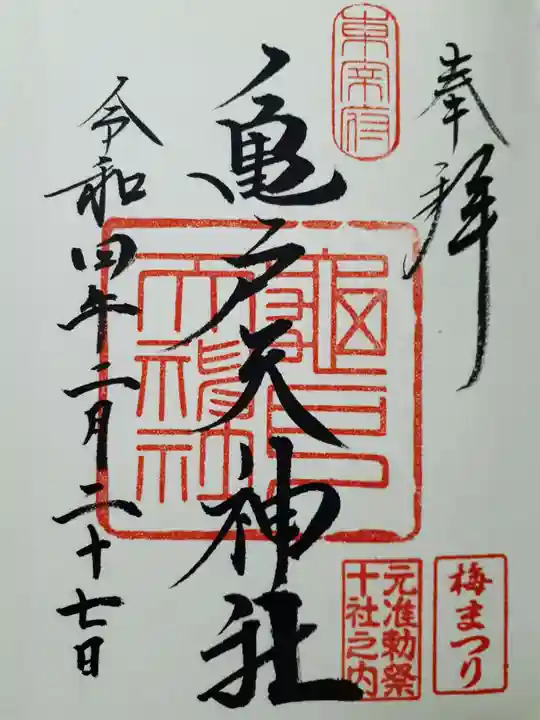 奉拝
東宰府
亀戸天神社
亀戸天神社
令和四年二月二十七日
元准勅祭
十社之内
梅まつり